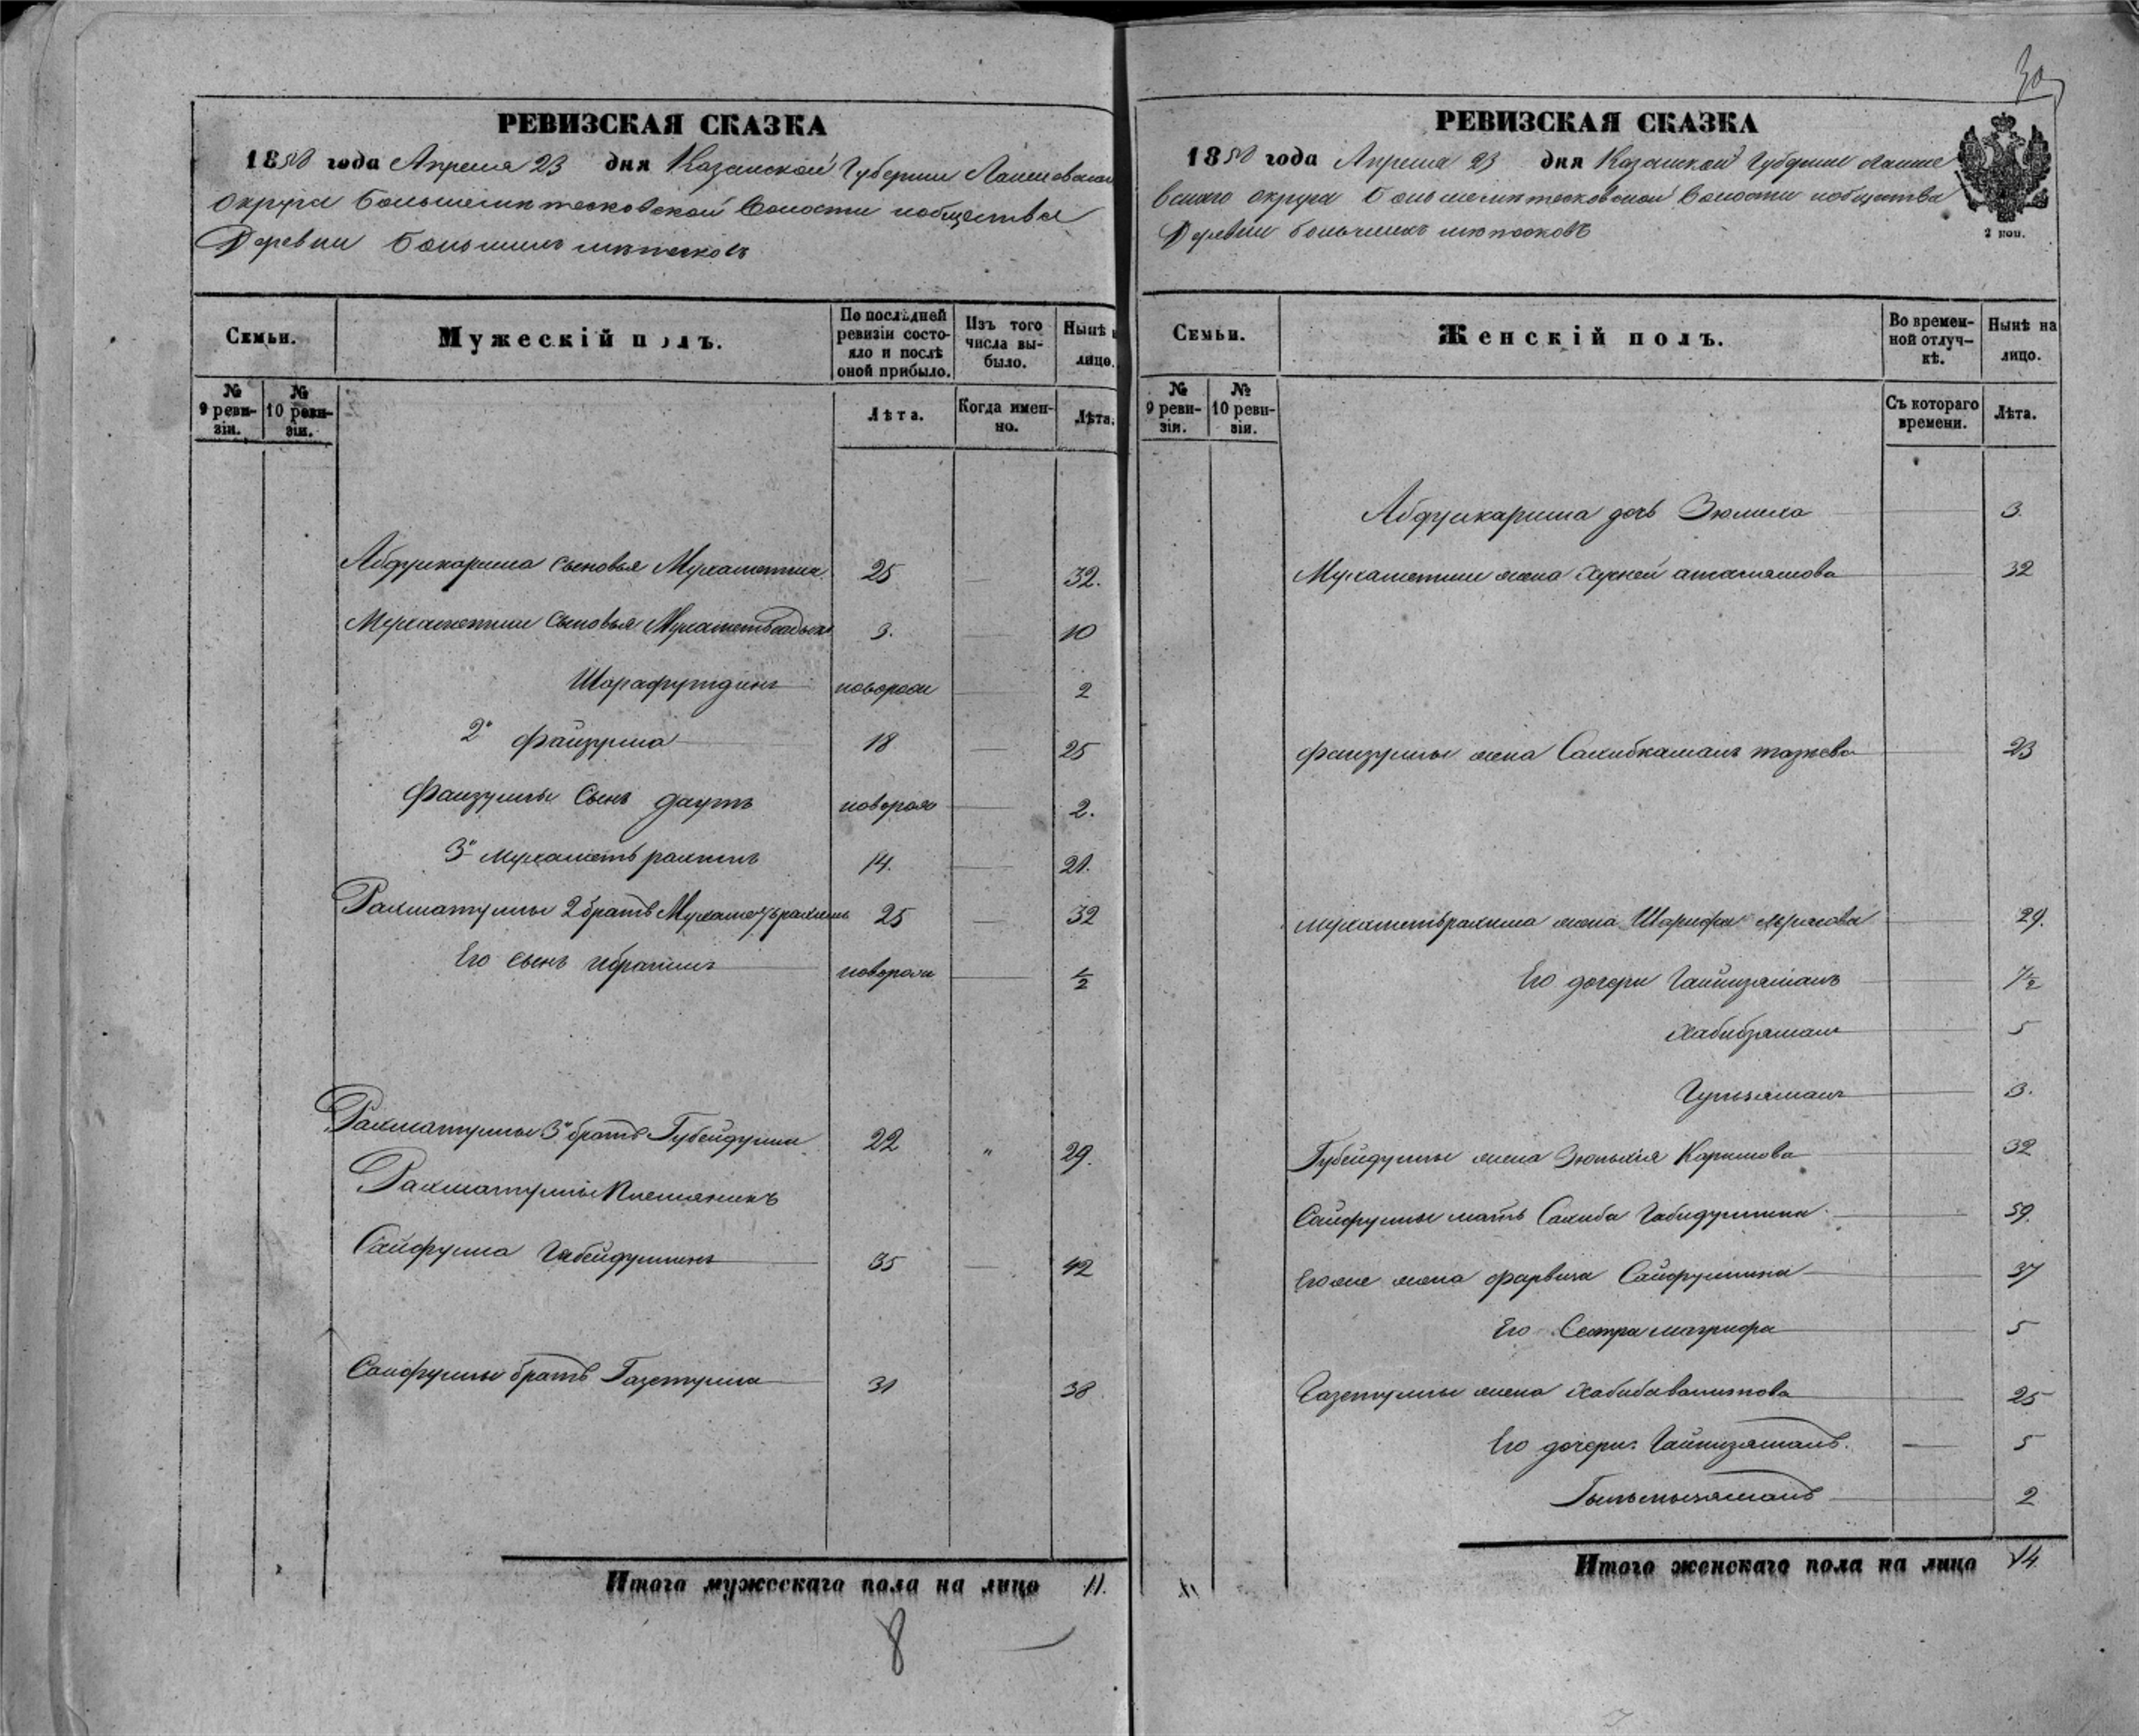 30
РЕВИЗСКАЯ СКАЗКА
1858 года Апреля 23 дня Казанской Губернии Лаишевскаго
округа Большеметесковской Волости и общества
Деревни Большихъ метесковъ
Семьи.
Мужескій полъ.
По послѣдней ревизіи состояло и послѣ оной прибыло.
Изъ того числа выбыло.
Нынѣ
лицо.
№ 9 ревизіи.
№ 10 ревизіи.
Лѣта.
Когда именно.
Лѣта.
Абдулкарима сыновья Мухаметша 25 32.
Мухаметши сыновья Мухаметсадыкъ 3. 10
Шарафутдинъ новорож 2
2й Файзулла 18 25
Файзуллы Сынъ даутъ новорож 2.
3й мухаметь рахимъ 14. 21.
Рахматуллы 2 братъ Мухаметьрахимъ 25 32
Его сынъ ибрагимъ новорож 1/2
Рахматуллы 3й братъ Губейдулла 22 " 29.
Рахматуллы Племяникъ
Сайфулла Габейдуллинъ 35 42
Сайфуллы братъ Газетулла 31 38.
Итого мужескаго пола на лицо 11.
8
РЕВИЗСКАЯ СКАЗКА
1858 года Апреля 23 дня Казанской Губернии Лаише
вскаго округа Большеметесковской Волости и общества
Деревни Большихъ метесковъ
2 коп.
Семьи.
Женскій полъ.
Во временной отлучкѣ.
Нынѣ на лицо.
№ 9 ревизіи.
№ 10 ревизіи.
Съ котораго времени.
Лѣта.
Абдулкарима дочь Зюлиха 3.
Мухаметши жена 32
Файзуллы жена Сахибкамалъ 23
мухаметьрахима жена Шарифа 29.
Его дочери Гайнизяманъ 7 1/2
Хабибзяман 5
Гульзяманъ 3.
Губейдуллы жена Зюльхія Каримова 32
Сайфуллы мать Сахиба Габидуллина 59.
Его же жена фарвиза Сайфуллина 37
Его Сестра магрифа 5
Газетуллы жена Хабиба валитова 25
Его дочери: Гайнизяманъ. 5
2
Итого женскаго пола на лицо 14.